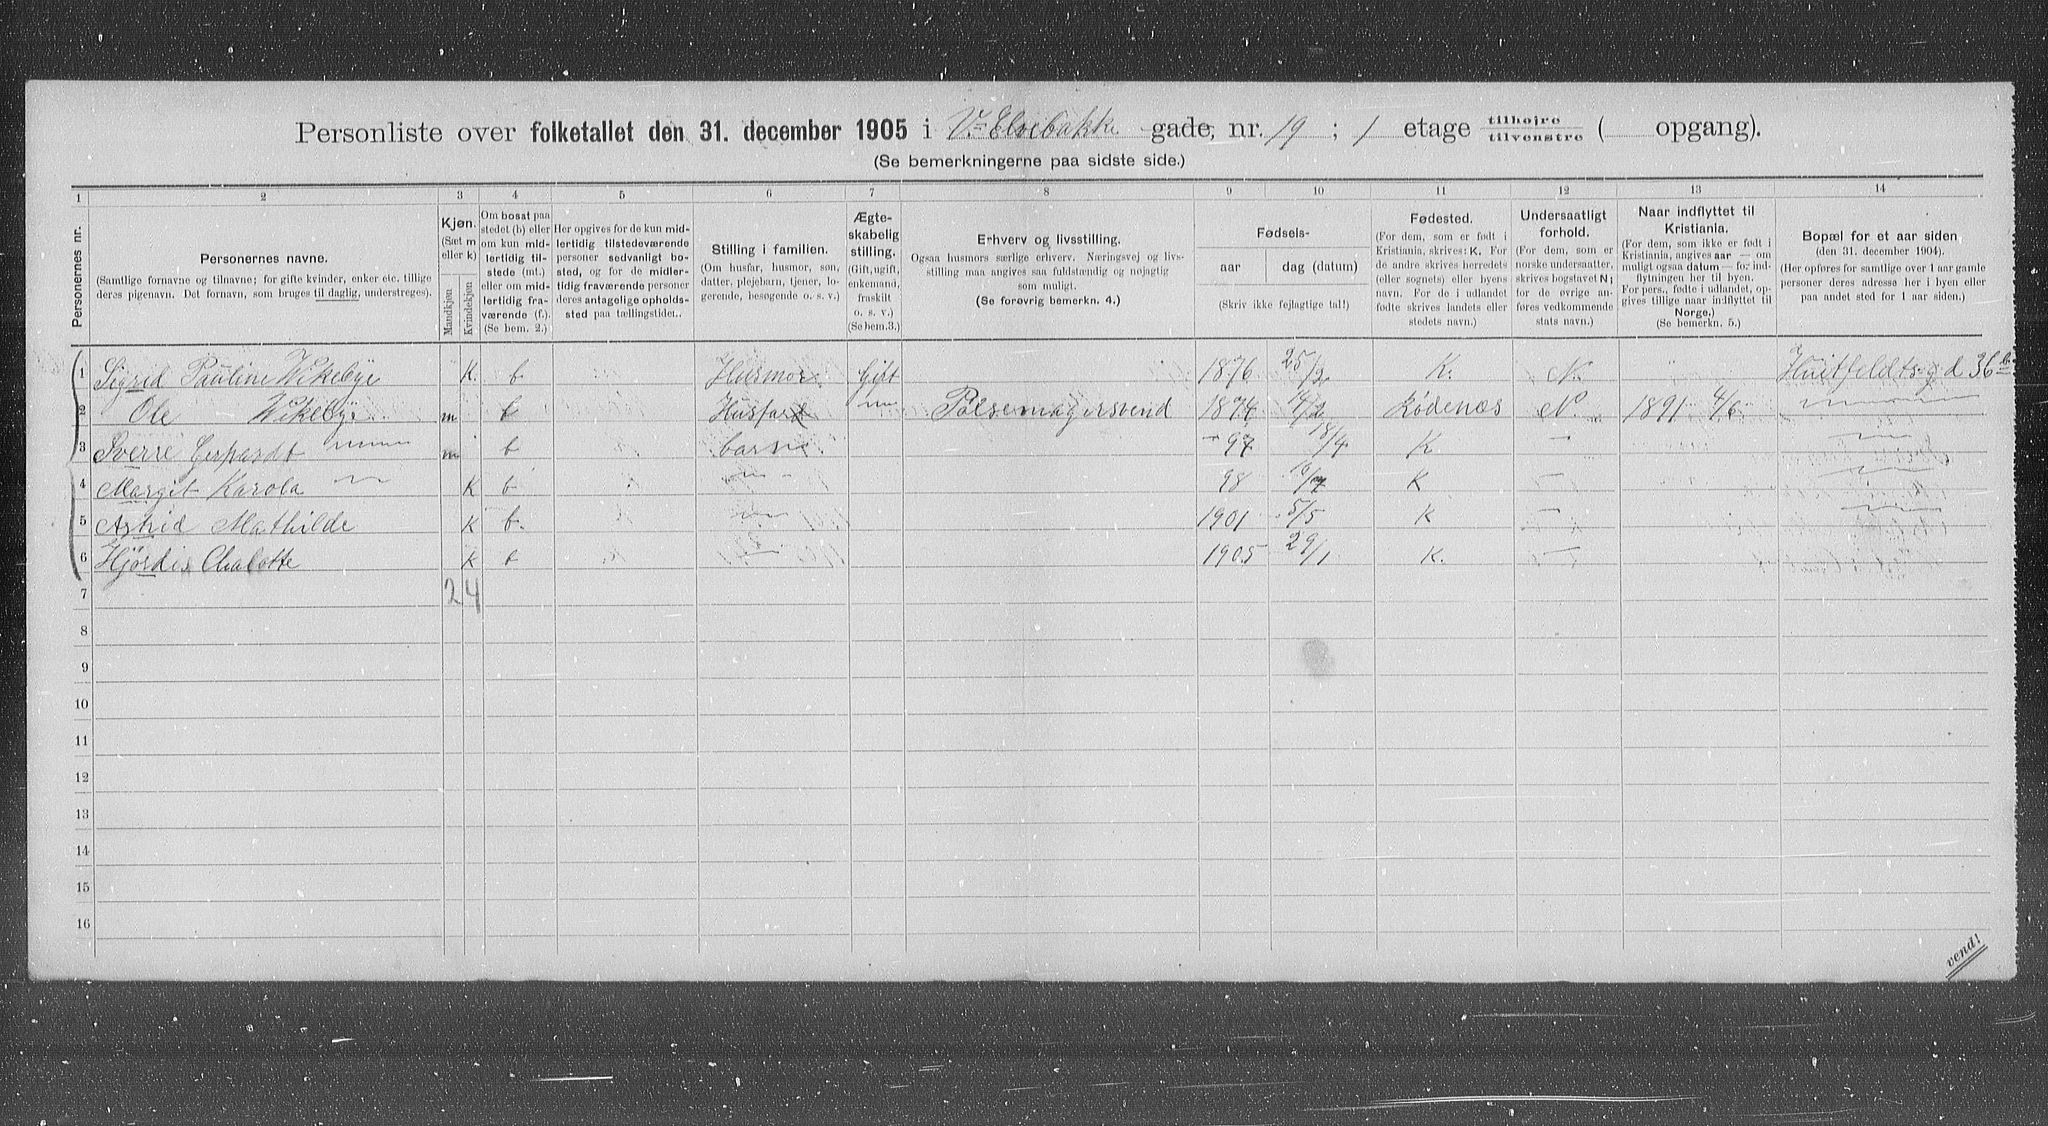 Personliste over folketallet den 31. december 1905 i V. Elvebakke gade, nr. 19 ; 1 etage tilhøjre tilvenstre ( opgang).
(Se bemerkningerne paa sidste side.)
1 2 3 4 5 6 7 8 9 10 11 12 13 14
Personernes nr.
Personernes navne.
(Samtlige fornavne og tilnavne; for gifte kvinder, enker etc. tillige deres pigenavn. Det fornavn, som bruges til daglig, understreges).
Kjøn.
(Sæt m eller k)
Mandkjøn
Kvindekjøn
Om bosat paa stedet (b) eller om kun midlertidig tilstede (mt.) eller om midlertidig fraværende (f.) (Se bem. 2.)
Her opgives for de kun midlertidig tilstedeværende personer sedvanligt bosted, og for de midlertidig fraværende personer deres antagelige opholdssted paa tællingstidet.
Stilling i familien.
(Om husfar, husmor, søn, datter, plejebarn, tjener, logerende, besøgende o. s. v.)
Ægteskabelig stilling.
(Gift, ugift, enkemand, fraskilt o. s. v.)
(Se bem. 3.)
Erhverv og livsstilling.
Ogsaa husmors særlige erhverv. Næringsvej og livsstilling maa angives saa fuldstændig og nøjagtig som muligt.
(Se forøvrig bemerkn. 4.)
Fødsels-
aar dag (datum)
(Skriv ikke fejlagtige tal!)
Fødested.
(For dem, som er født i Kristiania, skrives: K. For de andre skrives herredets (eller sognets) eller byens navn. For de i udlandet fødte skrives landets eller stedets navn.)
Undersaatligt forhold.
(For dem, som er norske undersaatter, skrives bogstavet N; for de øvrige anføres vedkommende stats navn.)
Naar indflyttet til Kristiania.
(For dem, som ikke er født i Kristiania, angives aar — om muligt ogsaa datum — for indflytningen her til byen. For pers., fødte i udlandet, opgives tillige naar indflyttet til Norge.)
(Se bemerkn. 5.)
Bopæl for et aar siden
(den 31. december 1904).
(Her opføres for samtlige over 1 aar gamle personer deres adresse her i byen eller paa andet sted for 1 aar siden.)
1 Sigrid Pauline Wikebye K. b Husmor Gift 1876 25/2 K. N. Huitfeldts.gd 36 b
2 Ole Wikebye m b Husfar " Pølsemagersvend 1874 14/2 Rødenæs N. 1891 4/6 "
3 Sverre Gerhardt " m b barn - 97 18/4 K - "
4 Margit Karola " K b " 98 10/7 K - "
5 Astrid Mathilde K b. " 1901 5/5 K -
6 Hjørdis Chalotte K b " 1905 29/1 K. -
7 2 4
8
9
10
11
12
13
14
15
16
vend!